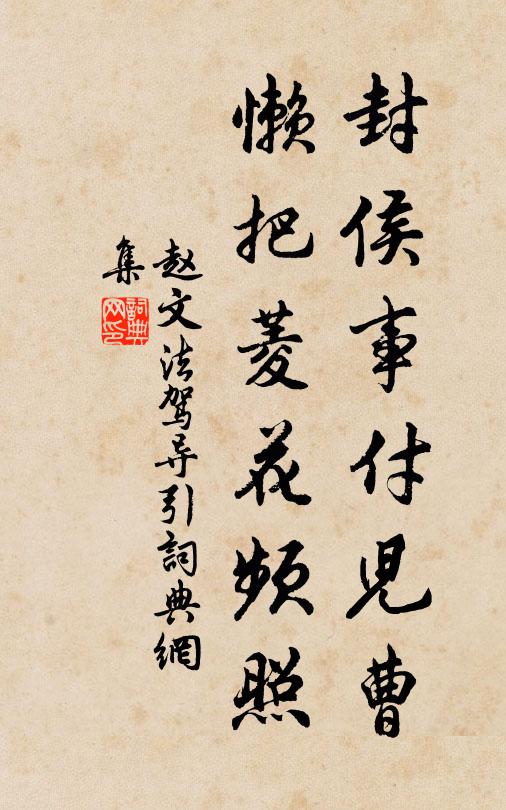 封侯事付児曹
懒把菱花频照
赵文法驾导引詞典網
集
詞典
网印